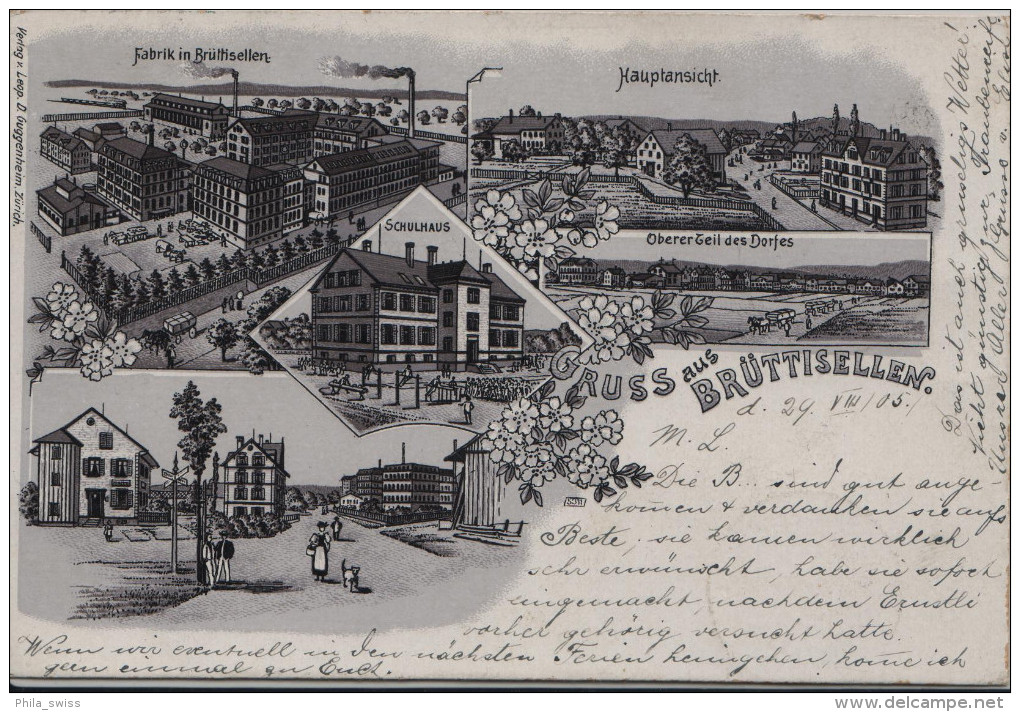 Verlag v. Leop. D. Guggenheim, Zürich.
Fabrik in Brüttisellen.
Hauptansicht.
SCHULHAUS
Oberer Teil des Dorfes
GRUSS aus
BRÜTTISELLEN.
d. 29. VIII/05.
M. L.
Die B... sind gut ange-
kom̄en & verdanken sie aufs
Beste, sie kamen wirklich
sehr erwünscht, habe sie sofort
eingemacht, nachdem Ernstli
vorher gehörig versucht hatte.
Wenn wir eventuell in den nächsten Ferien heimgehen, kom̄e ich
gern einmal zu Euch.
Das ist auch gruselig Wetter!
Nicht günstig zur Traubenreife.
Unser Aller Grüsse v. Elise
Phila_swiss
http://www.delcampe.net